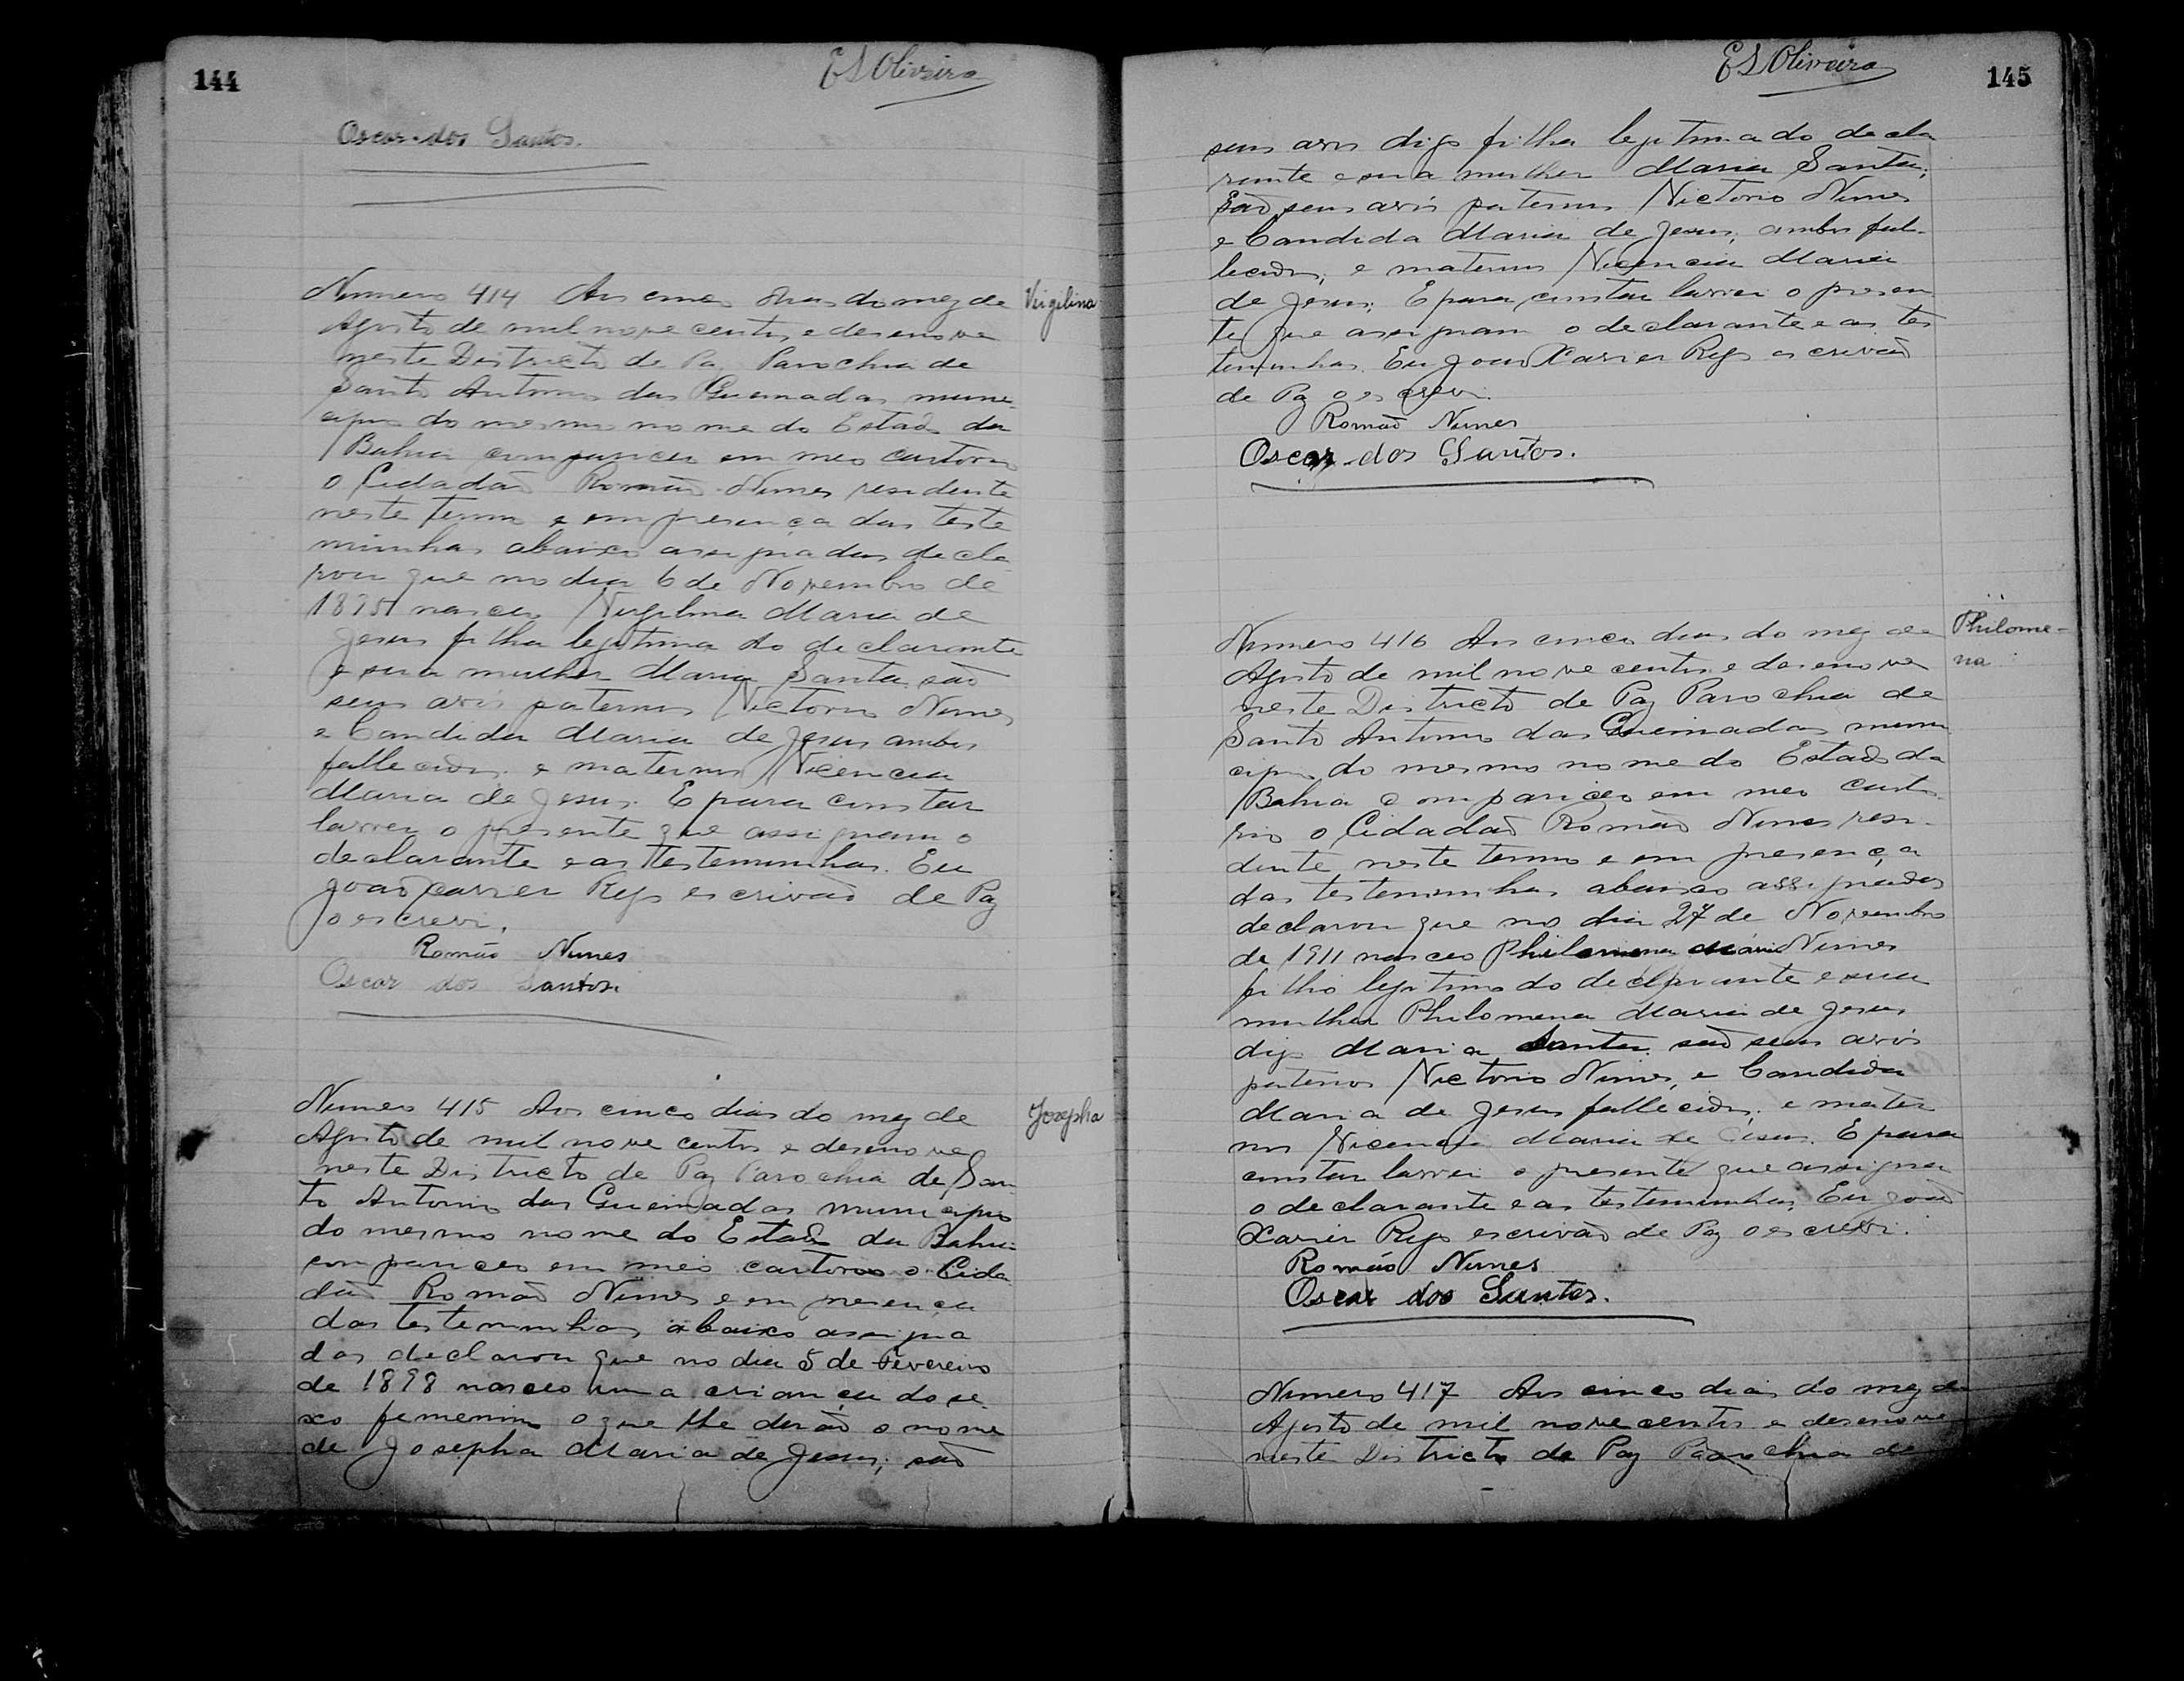 144
ESOliveira
Oscar dos Santos.
Virgilina
Numero 414 Aos cinco dias do mez de
Agosto de mil nove centos e desenove
neste Districto de Paz Parochia de
Santo Antonio das Queimadas muni-
cipio do mesmo nome do Estado da
Bahia compareceu em meo cartorio
o Cidadão Romão Nunes residente
neste termo e em presença das teste
munhas abaixo assignadas decla
rou que no dia 6 de Novembro de
1895 nasceu Virgilina Maria de
Jesus filha legitima do declarante
e sua mulher Maria Santa são
seus avós paternos Victorio Nunes
e Candida Maria de Jesus ambos
fallecidos, e maternos Vicencia
Maria de Jesus. E para constar
lavrei o presente que assignam o
declarante e as testemunhas. Eu
João Xavier Rego escrivão de Paz
o escrevi.
Romão Nunes
Oscar dos Santos
Josepha
Numero 415 Aos cinco dias do mez de
Agosto de mil nove centos e desenove
neste Districto de Paz Parochia de San
to Antonio das Queimadas municipio
do mesmo nome do Estado da Bahia
compareceo em meo cartorio o Cida
dão Romão Nunes e em presença
das testemunhas abaixo assigna
das declarou que no dia 5 de Fevereiro
de 1898 nasceo uma criança do se-
xo femenino o que lhe derão o nome
de Josepha Maria de Jesus; são
ESOliveira
145
seus avós digo filha legitima do decla
rante e sua mulher Maria Santa;
São seus avós paternos Victorio Nunes
e Candida Maria de Jesus, ambos fal-
lecidos; e maternos Vicencia Maria
de Jesus. E para constar lavrei o presen
te que assignam o declarante e as tes
temunhas. Eu João Xavier Rego escrivão
de Paz o escrevi.
Romão Nunes
Oscar dos Santos.
Philome-
na
Numero 416 Aos cinco dias do mez de
Agosto de mil nove centos e desenove
neste Districto de Paz Parochia de
Santo Antonio das Queimadas muni
cipio do mesmo nome do Estado da
Bahia compareceo em meo carto
rio o Cidadão Romão Nunes resi-
dente neste termo e em presença
das testemunhas abaixo assignadas
declarou que no dia 27 de Novembro
de 1911 nasceo Philomena Maria Nunes
filho legitimo do declarante e sua
mulher Philomena Maria de Jesus
digo Maria Santa são seus avós
paternos Victorio Nunes, e Candida
Maria de Jesus fallecidos; e mater
nos Vicencia Maria de Jesus. E para
constar lavrei o presente que assigna
o declarante e as testemunhas, Eu João
Xavier Rego escrivão de Paz o escrevi.
Romão Nunes
Oscar dos Santos.
Numero 417 Aos cinco dias do mez de
Agosto de mil nove centos e desenove
neste Districto de Paz Parochia de